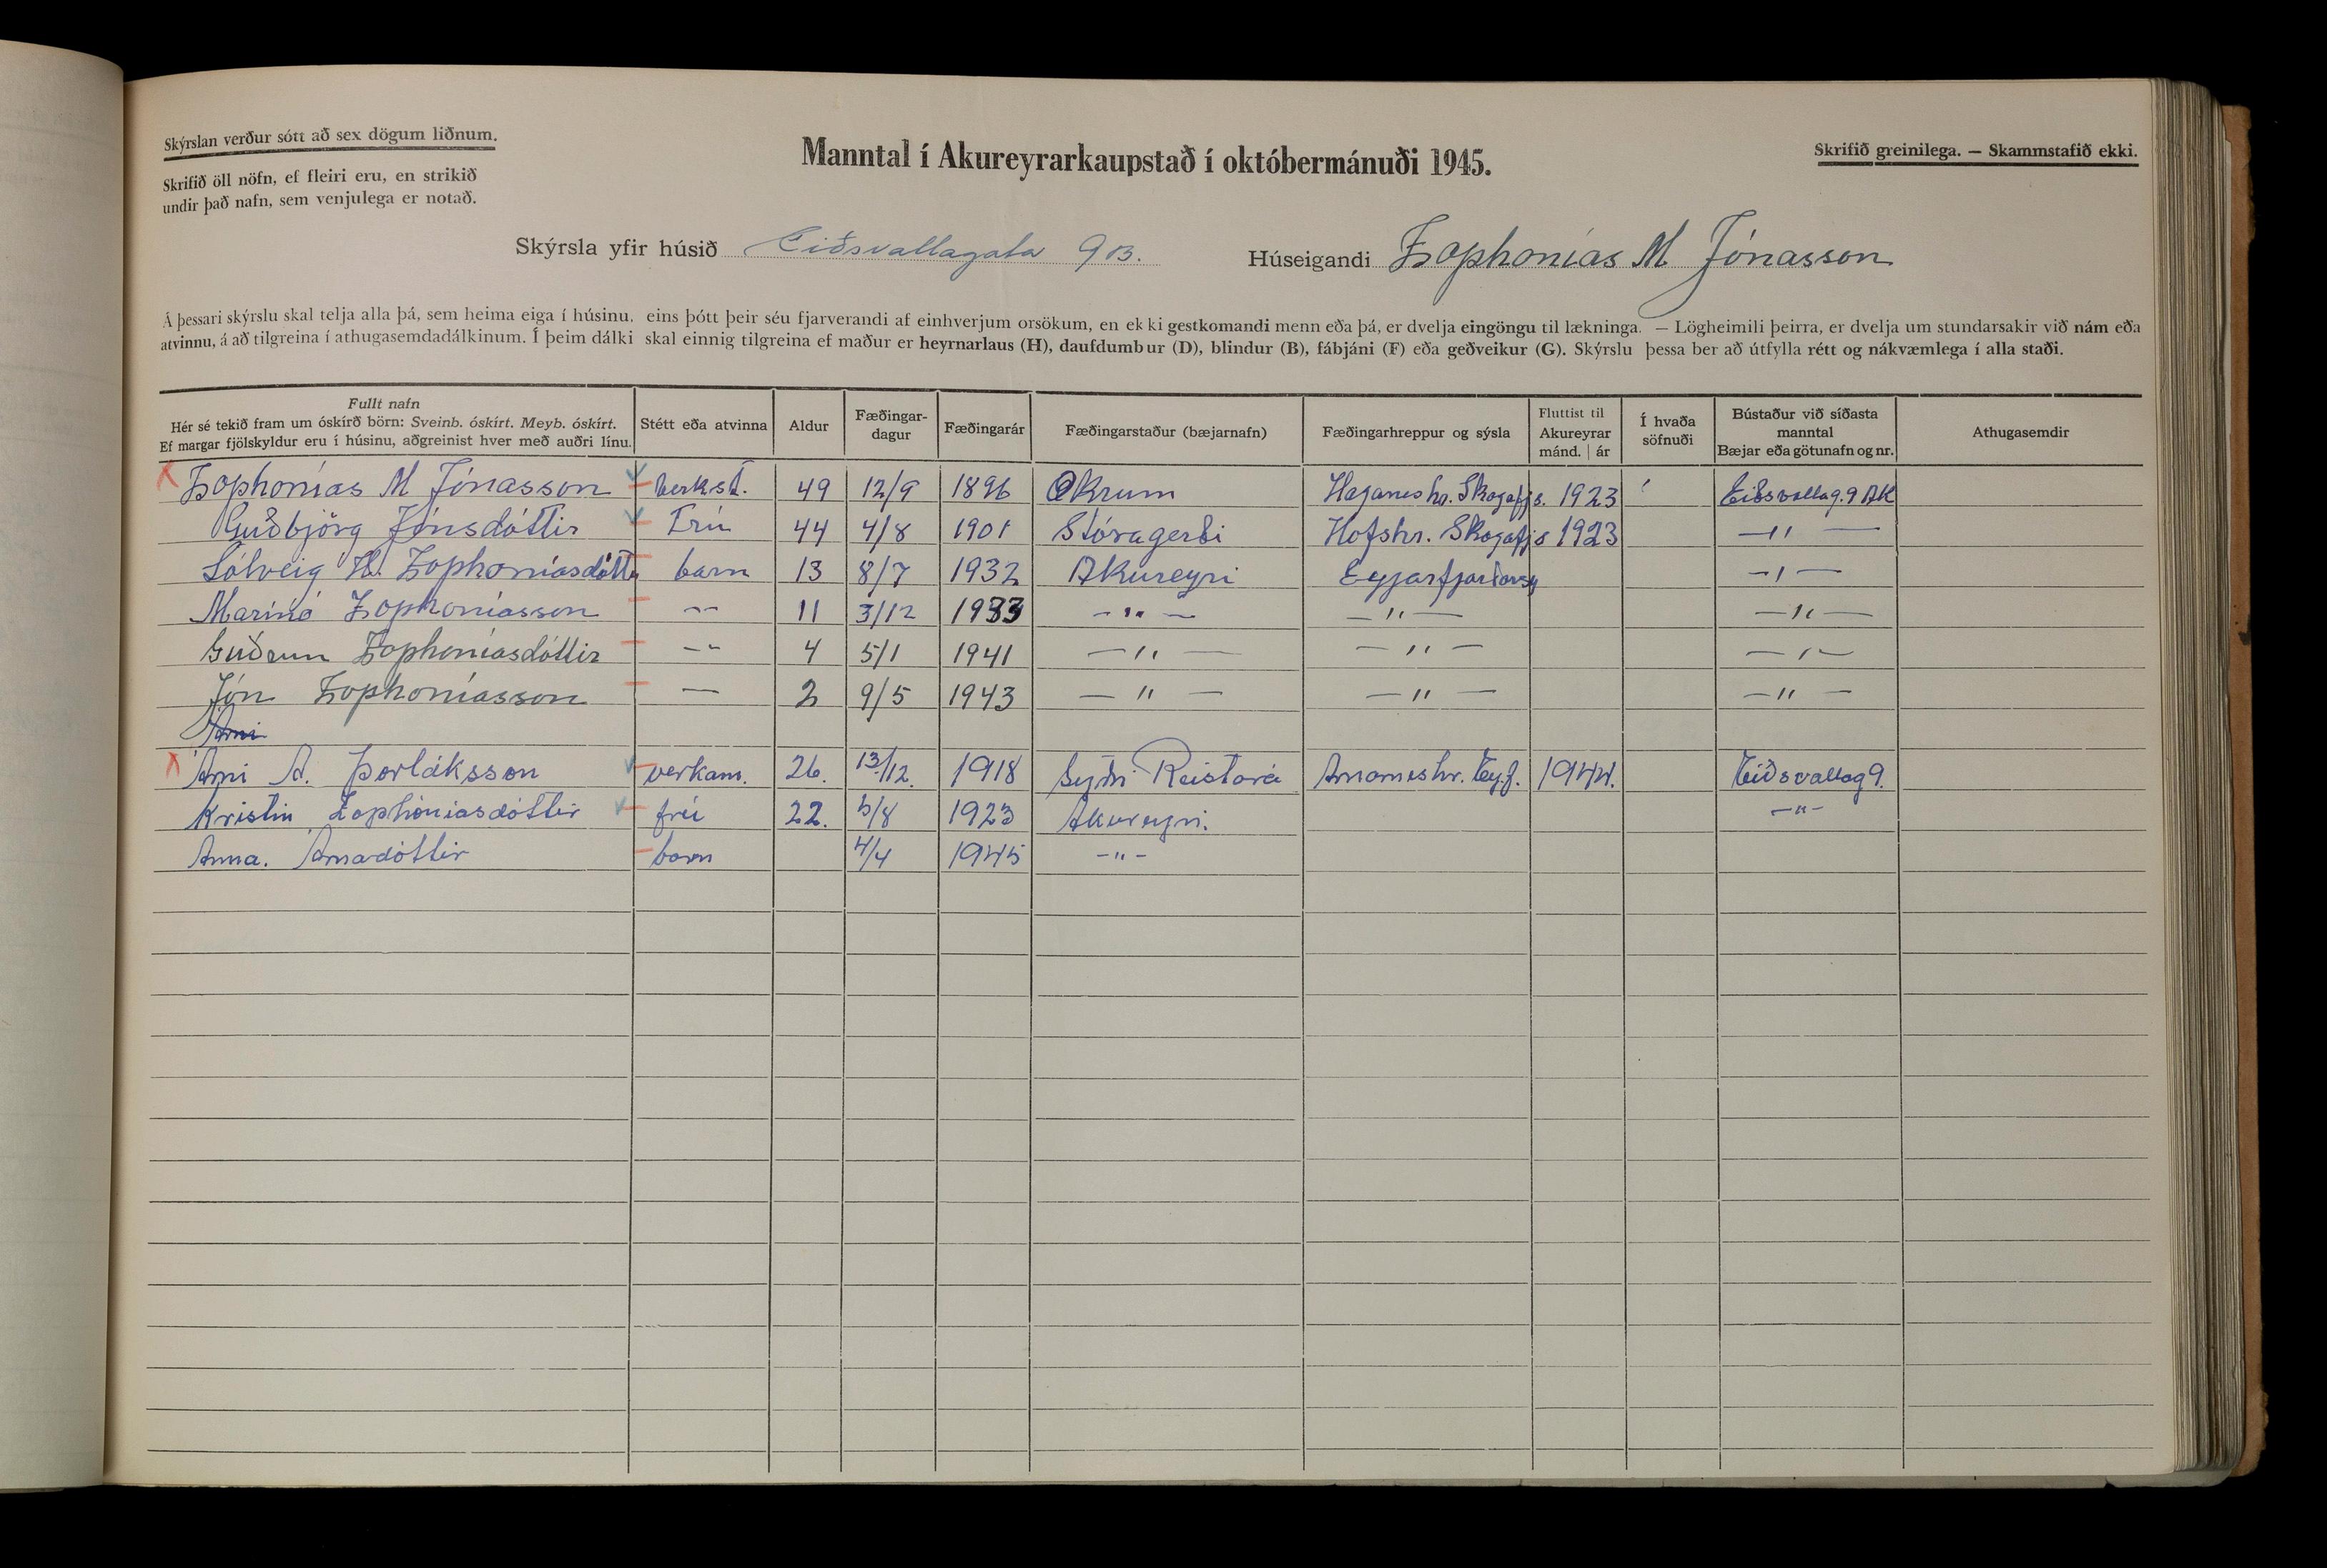 Skýrslan verður sótt að sex dögum liðnum.
Skrifið öll nöfn, ef fleiri eru, en strikið
undir það nafn, sem venjulega er notað.
Manntal í Akureyrarkaupstað í októbermánuði 1945.
Skrifið greinilega. — Skammstafið ekki.
Skýrsla yfir húsið Eiðsvallagata 9B. Húseigandi Zophonías M Jónasson
Á þessari skýrslu skal telja alla þá, sem heima eiga í húsinu, eins þótt þeir séu fjarverandi af einhverjum orsökum, en ekki gestkomandi menn eða þá, er dvelja eingöngu til lækninga. — Lögheimili þeirra, er dvelja um stundarsakir við nám eða
atvinnu, á að tilgreina í athugasemdadálkinum. Í þeim dálki skal einnig tilgreina ef maður er heyrnarlaus (H), daufdumbur (D), blindur (B), fábjáni (F) eða geðveikur (G). Skýrslu þessa ber að útfylla rétt og nákvæmlega í alla staði.
Fullt nafn
Hér sé tekið fram um óskírð börn: Sveinb. óskírt. Meyb. óskírt.
Ef margar fjölskyldur eru í húsinu, aðgreinist hver með auðri línu.
Stétt eða atvinna
Aldur
Fæðingar-
dagur
Fæðingarár
Fæðingarstaður (bæjarnafn)
Fæðingarhreppur og sýsla
Fluttist til
Akureyrar
mánd. | ár
Í hvaða
söfnuði
Bústaður við síðasta
manntal
Bæjar eða götunafn og nr.
Athugasemdir
Zophonías M Jónasson verkst. 49 12/9 1896 Ökrum Haganeshr. Skagafjs. 1923 Eiðsvallag. 9 AK
Guðbjörg Jónsdóttir Frú 44 4/8 1901 Stóragerði Hofshr. Skagafjs 1923 —"—
Sólveig H. Zophoníasdóttir barn 13 8/7 1932 Akureyri Eyjarfjarðarsy —"—
Marinó Zophoníasson —"— 11 3/12 1933 —"— —"— —"—
Guðrun Zophoníasdóttir —"— 4 5/1 1941 —"— —"— —"—
Jón Zophoníasson — 2 9/5 1943 —"— —"— —"—
Arni
Árni A. Þorláksson verkam. 26. 13/12. 1918 Syðri Reistará Arnarneshr. Eyf. 1944. Eiðsvallag 9.
Kristin Zophóníasdóttir frú 22. 5/8 1923 Akureyri. —"—
Anna. Árnadóttir barn 4/4 1945 —"—